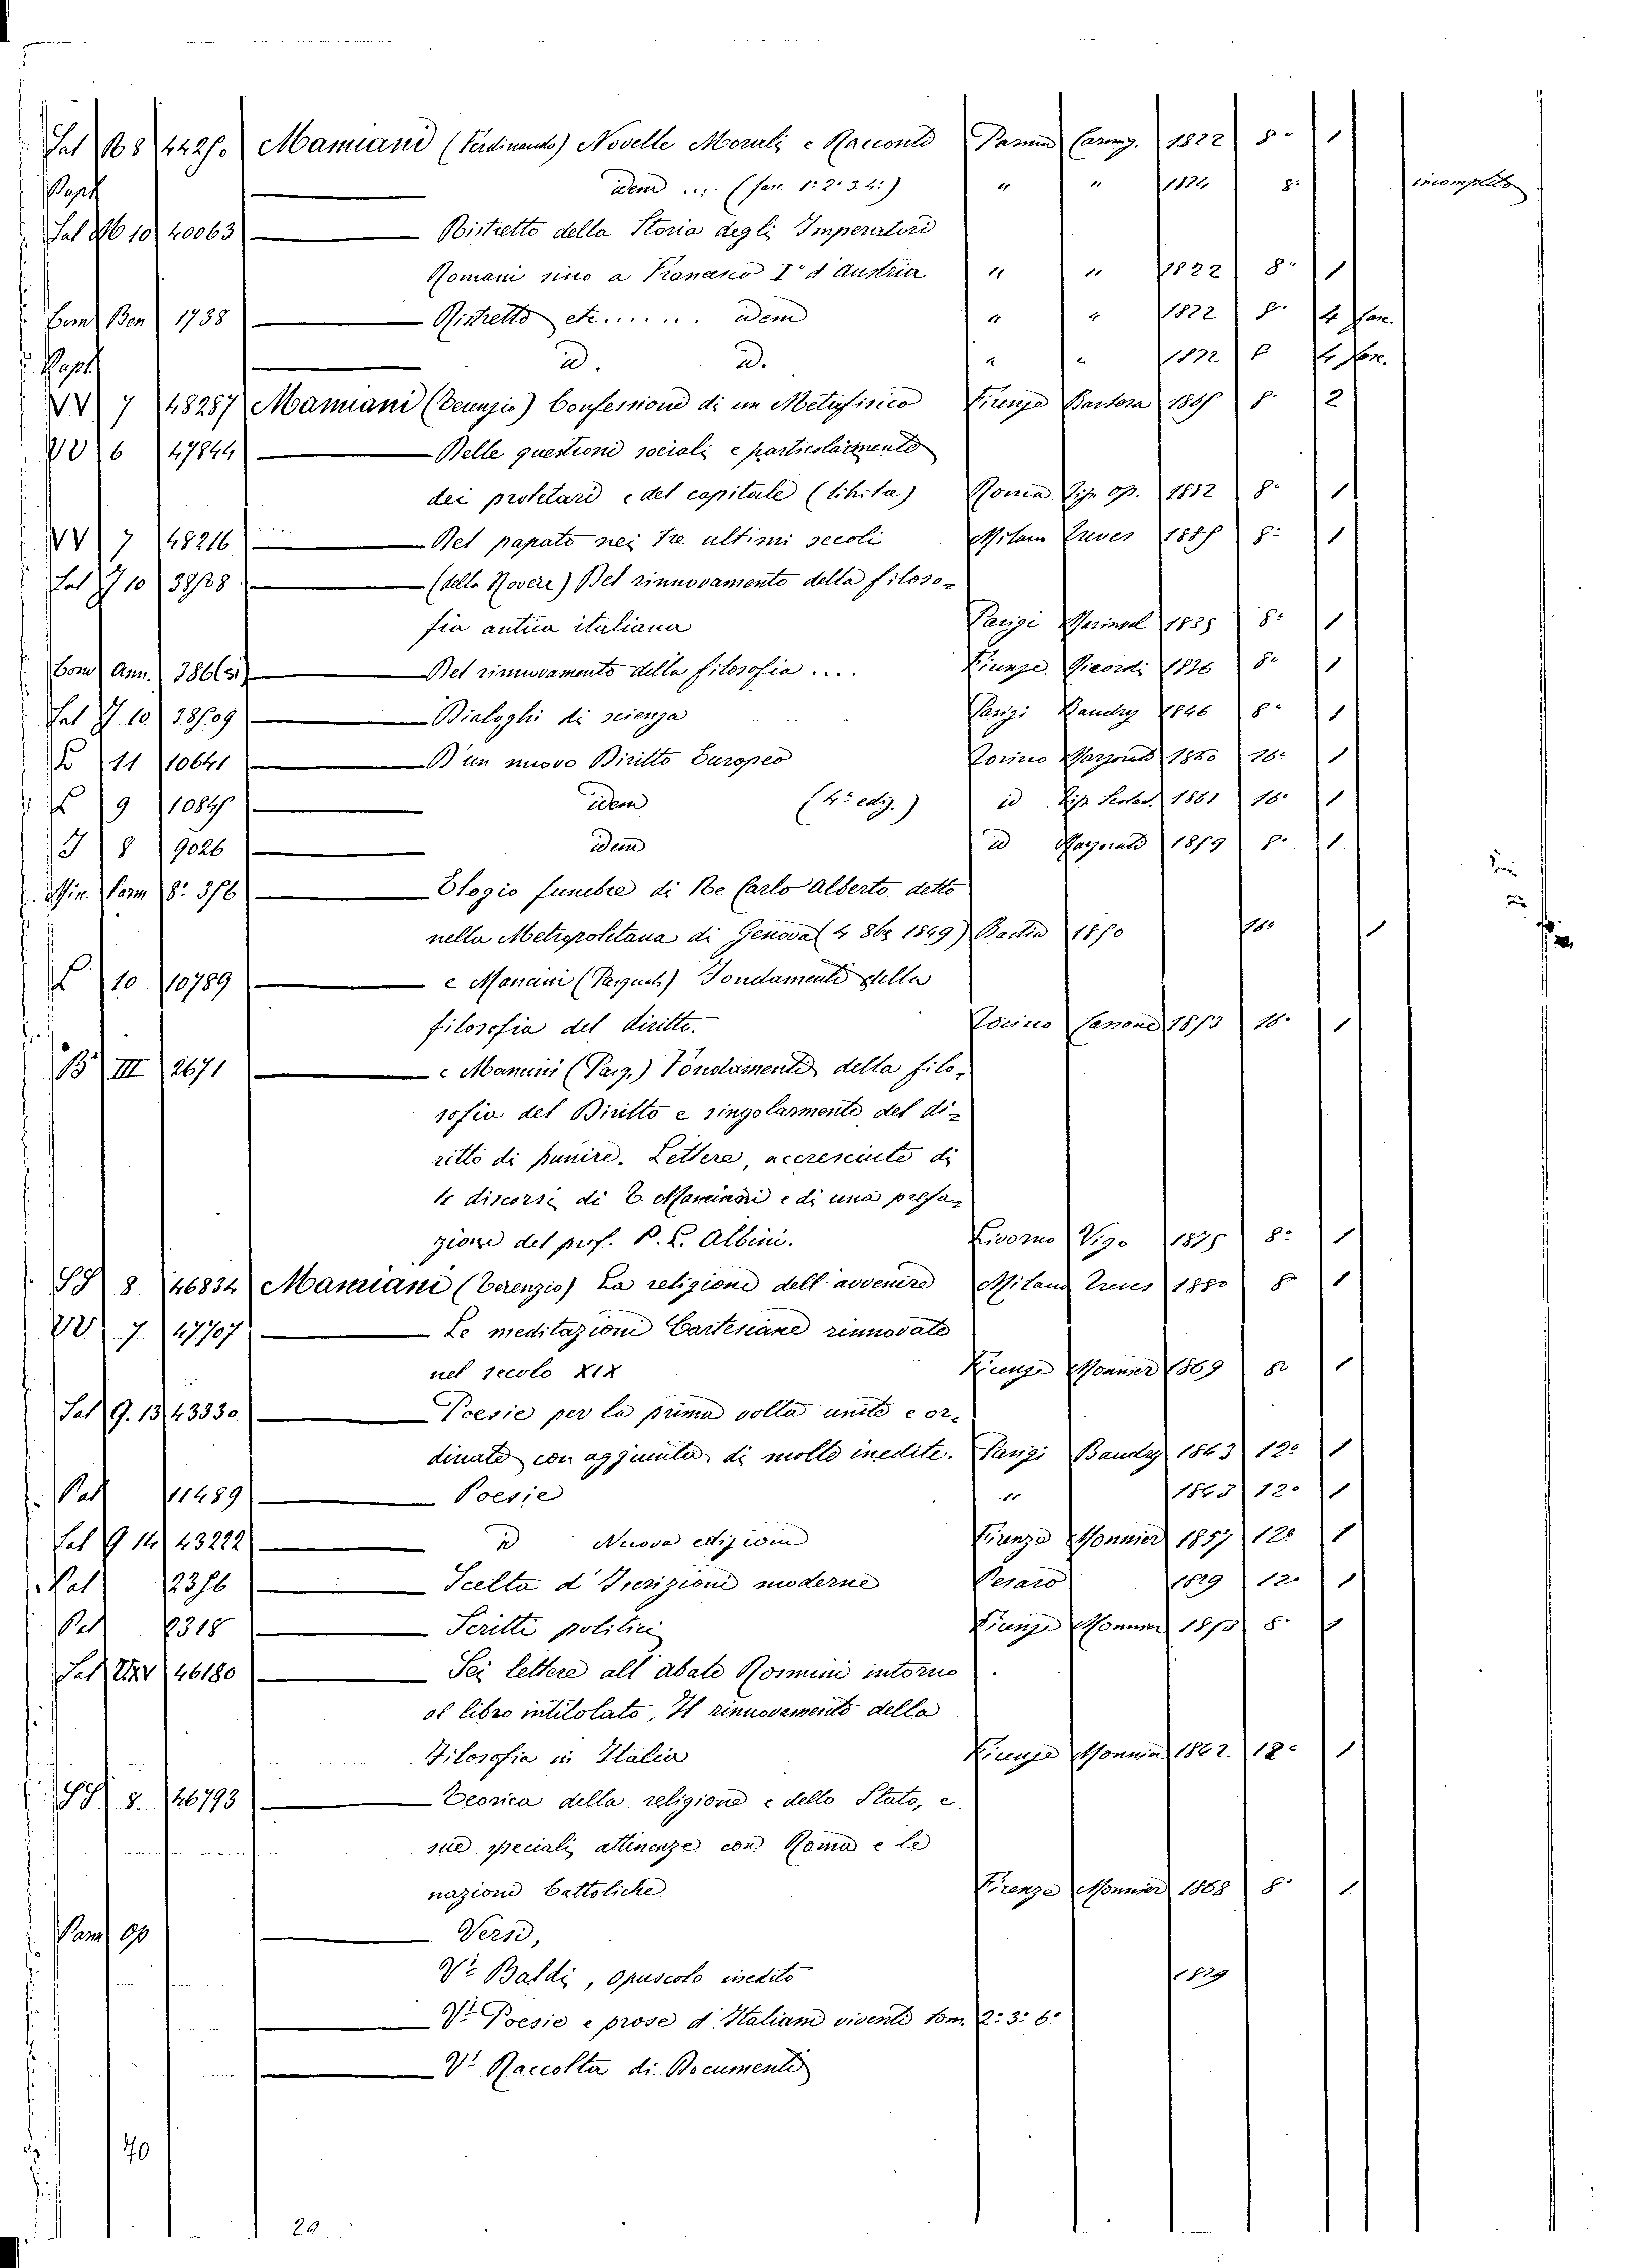 Sal M 8 4425. Mamiani (Ferdinando) Novelle Morali e Racconti Parma Carmig. 1822 8° 1
Papf idem .... (fasc. 1° 2° 3. 4°) " " 1824 8° incompleto
Sal M 10 40063 Ristretto della Storia degli Imperatori
Romani sino a Francesco I° d'Austria " " 1822 8° 1
Com Ben 1738 Ristretto etc....... idem " " 1822 8° 4 fasc.
Papf id. id. " " 1822 8 4 fasc.
VV 7 48287 Mamiani (Terenzio) Confessioni di un Metafisico Firenze Barbera 1865 8° 2
VV 6 47844 Delle questioni sociali e particolarmente
dei proletari e del capitale (libri tre) Roma Tip. op. 1882 8° 1
VV 7 48216 Del papato nei tre ultimi secoli Milano Treves 1885 8° 1
Sal J 10 38728 (della Rovere) Del rinnovamento della filoso-
fia antica italiana Parigi 1835 8° 1
Com Ann. 386(3) Del rinnovamento della filosofia .... Firenze Ricordi 1836 8° 1
Sal J. 10 38509 Dialoghi di scienza Parigi Baudry 1846 8° 1
11 10641 D'un nuovo Diritto Europeo Torino Marzorati 1860 16° 1
9 10845 idem (4° ediz.) id Tip. Scolas. 1861 16° 1
8 9026 idem id Marzorati 1859 8° 1
Min. Parm 8° 356 Elogio funebre di Re Carlo Alberto detto
nella Metropolitana di Genova (4 8bre 1849) Bastia 1850 16° 1
10 10789 e Mancini (Pasquale) Fondamenti della
filosofia del diritto. Torino Canone 1853 16° 1
B° III 2671 e Mancini (Pasq.) Fondamenti della filo-
sofia del Diritto e singolarmente del di-
ritto di punire. Lettere, accresciute di
4 discorsi di T. Mamiani e di una prefa-
zione del prof. P. L. Albini. Livorno Vigo 1875 8° 1
SS 8 46834 Mamiani (Terenzio) La religione dell'avvenire Milano Treves 1880 8° 1
VV 7 47707 Le meditazioni Cartesiane rinnovate
nel secolo XIX. Firenze Monnier 1869 8° 1
Sal G. 13 43330 Poesie per la prima volta unite e or-
dinate con aggiunta di molte inedite. Parigi Baudry 1843 12° 1
Pal 11489 Poesie " 1843 12° 1
Sal G 14 43222 id Nuova edizione Firenze Monnier 1857 12° 1
Pal 12356 Scelta d'Iscrizioni moderne Pesaro 1829 12° 1
Pal 8318 Scritti politici Firenze Monnier 1853 8° 1
Sal 46180 Sei lettere all'abate Rosmini intorno
al libro intitolato, Il rinnovamento della
Filosofia in Italia Firenze Monnier 1842 12° 1
SS 8. 46793 Teorica della religione e dello Stato, e
sue speciali attinenze con Roma e le
nazioni Cattoliche Firenze Monnier 1868 8° 1
Parm op Versi,
V° Baldi, opuscolo inedito 1829
V° Poesie e prose d'Italiani viventi tom. 2° 3° 6°
V° Raccolta di Documenti
40
29